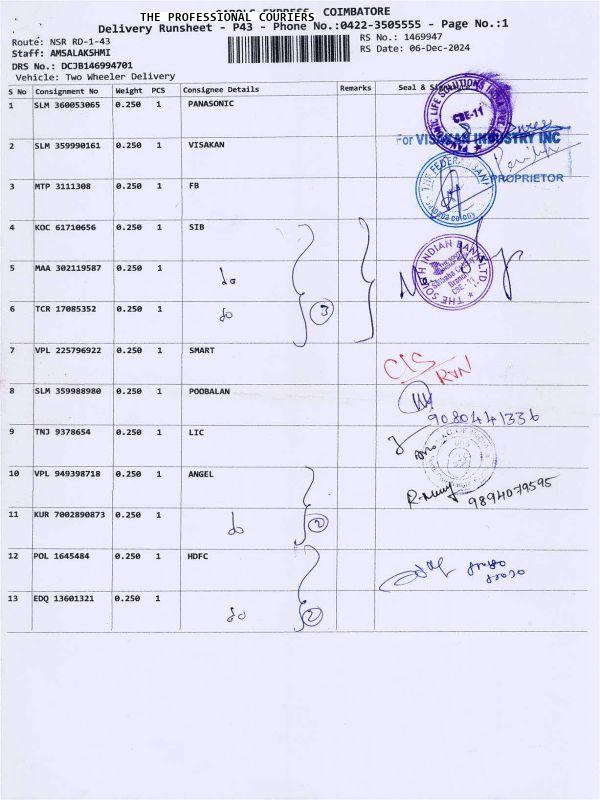 THE PROFESSIONAL COURIERS
EXPRESS, COIMBATORE
Delivery Runsheet - P43 - Phone No.:0422-3505555 - Page No.:1
Route: NSR RD-1-43
RS No.: 1469947
Staff: AMSALAKSHMI
RS Date: 06-Dec-2024
DRS No.: DCJB146994701
Vehicle: Two Wheeler Delivery
S No Consignment No Weight PCS Consignee Details Remarks Seal &
1 SLM 360053065 0.250 1 PANASONIC
CBE-11
2 SLM 359990161 0.250 1 VISAKAN
For VISAKAN INDUSTRY INC
PROPRIETOR
3 MTP 3111308 0.250 1 FB
THE FEDERAL BANK
4 KOC 61710656 0.250 1 SIB
THE SOUTH INDIAN BANK LTD
Branch
CBE - 11
5 MAA 302119587 0.250 1 do
6 TCR 17085352 0.250 1 do 3
7 VPL 225796922 0.250 1 SMART
8 SLM 359988980 0.250 1 POOBALAN
9080441336
9 TNJ 9378654 0.250 1 LIC
10 VPL 949398718 0.250 1 ANGEL
9894079595
11 KUR 7002890873 0.250 1 do 2
12 POL 1645484 0.250 1 HDFC
13 EDQ 13601321 0.250 1 do 2